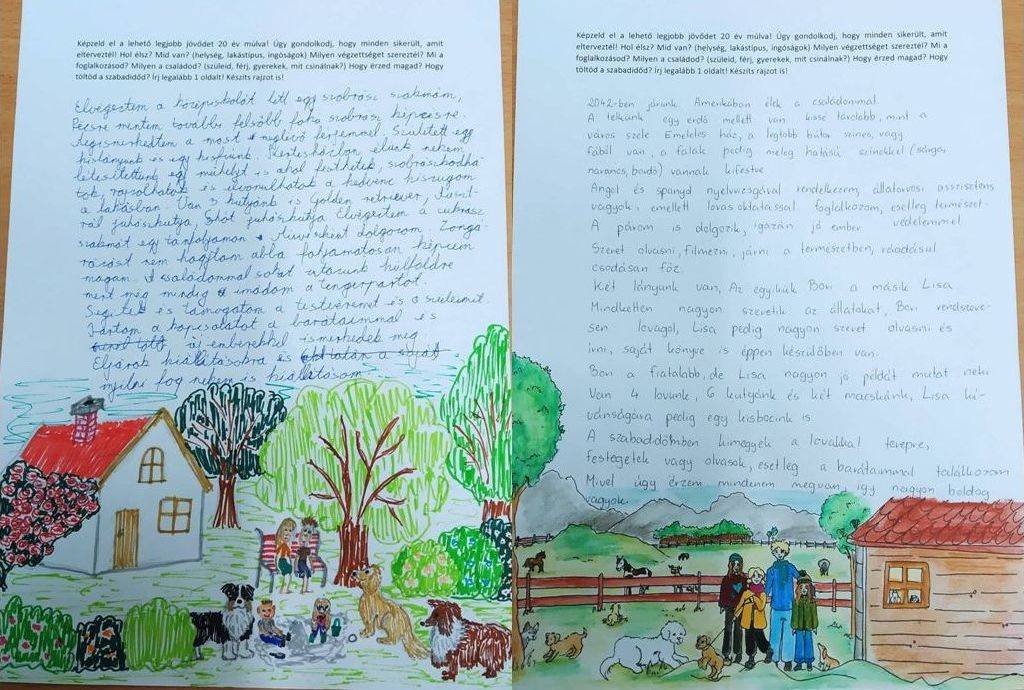 Képzeld el a lehető legjobb jövődet 20 év múlva! Úgy gondolkodj, hogy minden sikerült, amit
elterveztél! Hol élsz? Mid van? (helység, lakástípus, ingóságok) Milyen végzettséget szereztél? Mi a
foglalkozásod? Milyen a családod? (szüleid, férj, gyerekek, mit csinálnak?) Hogy érzed magad? Hogy
töltöd a szabadidőd? Írj legalább 1 oldalt! Készíts rajzot is!
Elvégeztem a középiskolát lett egy szobrász szakmám,
Pécsre mentem tovább felsőbb fokú szobrász képzésre.
Megismerkedtem a most meglévő férjemmel. Született egy
kislányunk és egy kisfiunk. Kertesházban élünk nekem
létesítettünk egy műhelyt is ahol festhetek, szobrászkodha-
tok, rajzolhatok és elvonulhatok a kedvenc kiszugom
a lakásban. Van 3 kutyánk is Golden retriever,
juhászkutya, Skót juhászkutya Elvégeztem a cukrász
szakmát egy tanfolyamon. Művészként dolgozom. Zongo-
rázást nem hagytam abba folyamatosan képzem
magam. A családommal sokat utazunk külföldre
mert még mindig imádom a tengerpartot.
Segítek és támogatom a testvéremet és a szüleimet.
Tartom a kapcsolatot a barátaimmal és
új emberekkel ismerkedek meg
Eljárok kiállításokra és
nyílni fog nekem is kiállításom
Képzeld el a lehető legjobb jövődet 20 év múlva! Úgy gondolkodj, hogy minden sikerült, amit
elterveztél! Hol élsz? Mid van? (helység, lakástípus, ingóságok) Milyen végzettséget szereztél? Mi a
foglalkozásod? Milyen a családod? (szüleid, férj, gyerekek, mit csinálnak?) Hogy érzed magad? Hogy
töltöd a szabadidőd? Írj legalább 1 oldalt! Készíts rajzot is!
2042-ben járunk Amerikában élek a családommal.
A telkünk egy erdő mellett van kissé távolabb, mint a
város széle Emeletes ház, a legtöbb bútor színes, vagy
fából van, a falak pedig meleg hatású színekkel (sárga,
narancs, bordó) vannak kifestve
Angol és spanyol nyelvvizsgával rendelkezem, állatorvosi asszisztens
vagyok, emellett lovas oktatással foglalkozom, esetleg természet-
védelemmel
A párom is dolgozik, igazán jó ember
Szeret olvasni, filmezni, járni a természetben, ráadásul
csodásan főz.
Két lányunk van, Az egyikük Bori a másik Lisa
Mindketten nagyon szeretik az állatokat, Bori rendszere-
sen lovagol, Lisa pedig nagyon szeret olvasni és
írni, saját könyve is éppen készülőben van.
Bori a fiatalabb, de Lisa nagyon jó példát mutat neki
Van 4 lovunk, 6 kutyánk és két macskánk, Lisa kí-
vánságára pedig egy kisbocink is.
A szabadidőmben kimegyek a lovakkal terepre,
festegetek vagy olvasok, esetleg a barátaimmal találkozom
Mivel úgy érzem mindenem megvan, így nagyon boldog
vagyok.